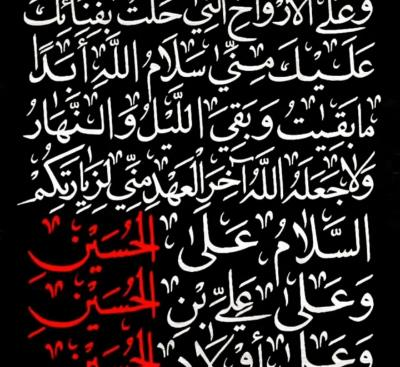 وَعَلَى الْأَرْوَاحِ الَّتِي حَلَّتْ بِفِنَائِكَ
عَلَيْكَ مِنِّي سَلَامُ اللَّهِ أَبَدًا
مَا بَقِيتُ وَبَقِيَ اللَّيْلُ وَالنَّهَارُ
وَلَا جَعَلَهُ اللَّهُ آخِرَ الْعَهْدِ مِنِّي لِزِيَارَتِكُمْ
السَّلَامُ عَلَى الْحُسَيْنِ
وَعَلَى عَلِيِّ بْنِ الْحُسَيْنِ
وَعَلَى أَوْلَادِ الْحُسَيْنِ